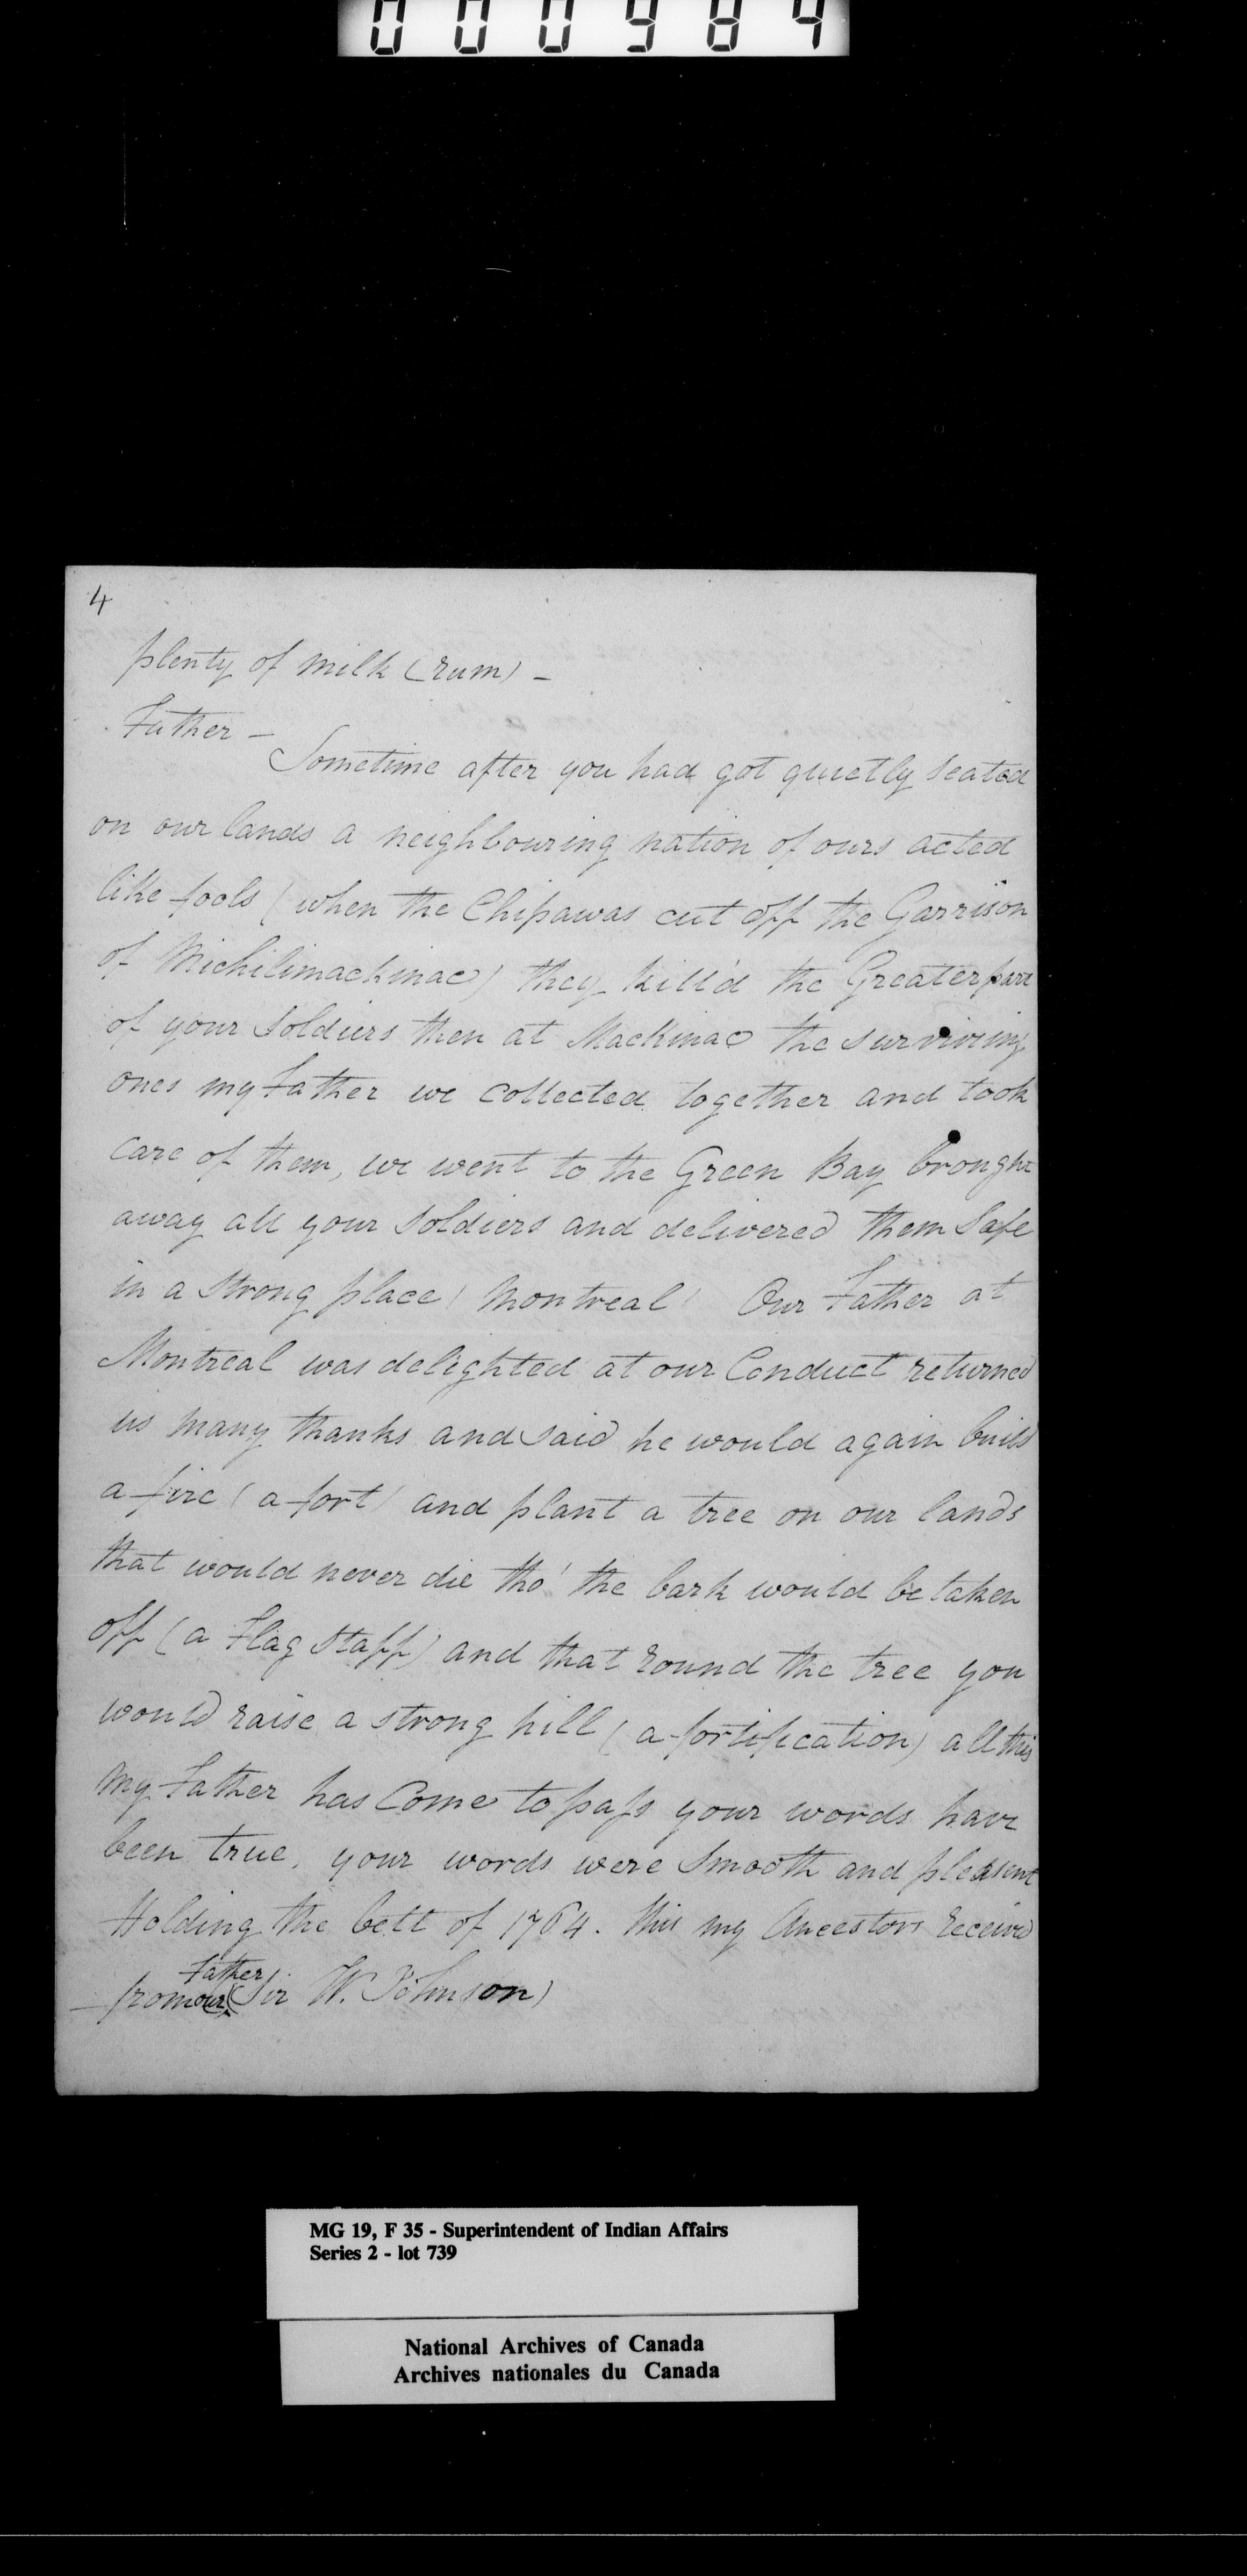 000984
4
plenty of milk (rum) -
Father -
Sometime after you had got quietly seated
on our lands a neighbouring nation of ours acted
like fools (when the Chipawas cut off the Garrison
of Michilimackinac) they kill'd the Greater part
of your Soldiers then at Mackinac the surviving
ones my Father we collected together and took
care of them, we went to the Green Bay brought
away all your Soldiers and delivered them Safe
in a strong place (Montreal) Our Father at
Montreal was delighted at our Conduct returned
us many thanks and said he would again build
a fire (a fort) and plant a tree on our lands
that would never die tho' the bark would be taken
off (a Flag Staff) and that round the tree you
would raise a strong hill (a fortification) all this
my Father has Come to pass your words have
been true, your words were Smooth and pleasent
Holding the belt of 1764. this my Ancestors received
Father
from our (Sir W. Johnson)
MG 19, F 35 - Superintendent of Indian Affairs
Series 2 - lot 739
National Archives of Canada
Archives nationales du Canada